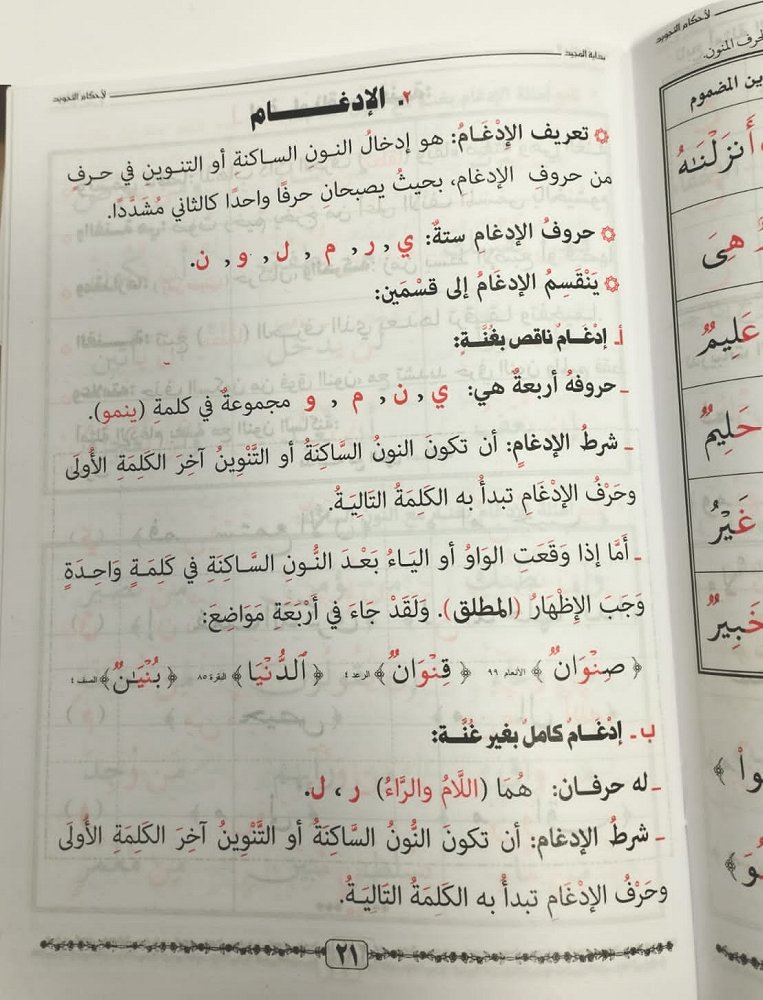 بداية المجيد
لأحكام التجويد
٢. الإدغـــــــام
تعريف الإِدْغَامُ: هو إدخالُ النونِ الساكنة أو التنوين في حرفٍ
من حروفِ الإدغام، بحيثُ يصبحانِ حرفًا واحدًا كالثاني مُشَدَّدًا.
حروفُ الإدغامِ ستةٌ: ي , ر , م , ل , و , ن.
يَنْقَسِمُ الإدغَامُ إلى قسْمَين:
أ- إدْغَـامُ ناقص بغُنَّـةٍ:
- حروفهُ أربعةٌ هي: ي , ن , م , و مجموعةٌ في كلمةِ (ينمو).
- شرطُ الإدغامِ: أن تكونَ النونُ السَّاكِنَةُ أو التَّنْوِينُ آخِرَ الكَلِمَةِ الأُولَى
وحَرْفُ الإدْغَامِ تبدأُ به الكَلِمَةُ التَالِيَـةُ.
- أَمَّا إذا وَقَعَتِ الوَاوُ أو اليَـاءُ بَعْـدَ النُّـونِ السَّـاكِنَةِ في كَلِمَـةٍ وَاحِـدَةٍ
وَجَبَ الإِظْهَارُ (المطلق). وَلَقَدْ جَاءَ في أَرْبَعَةِ مَوَاضِعَ:
﴿ صِنْوَانٌ ﴾ الأنعام ٩٩ ﴿ قِنْوَانٌ ﴾ الرعد ٤ ﴿ ٱلدُّنْيَا ﴾ البقرة ٨٥ ﴿ بُنْيَـٰنٌ ﴾ الصف ٤
ب - إدْغَـامُ كاملُ بغير غُنَّـة:
- له حرفـان: هُمَا (اللَّامُ والرَّاءُ) ر ، ل.
- شرطُ الإدغام: أن تكونَ النُّونُ السَّاكِنَةُ أو التَّنْوِينُ آخِرَ الكَلِمَةِ الأُولَى
وحَرْفُ الإدْغَامِ تبدأُ به الكَلِمَةُ التَالِيَـةُ.
٢١
لأحكام التجويد
الحرف المنون.
هِىَ
عَلِيمٌ
حَلِيمٌ
غَيْرُ
خَبِيرٌ